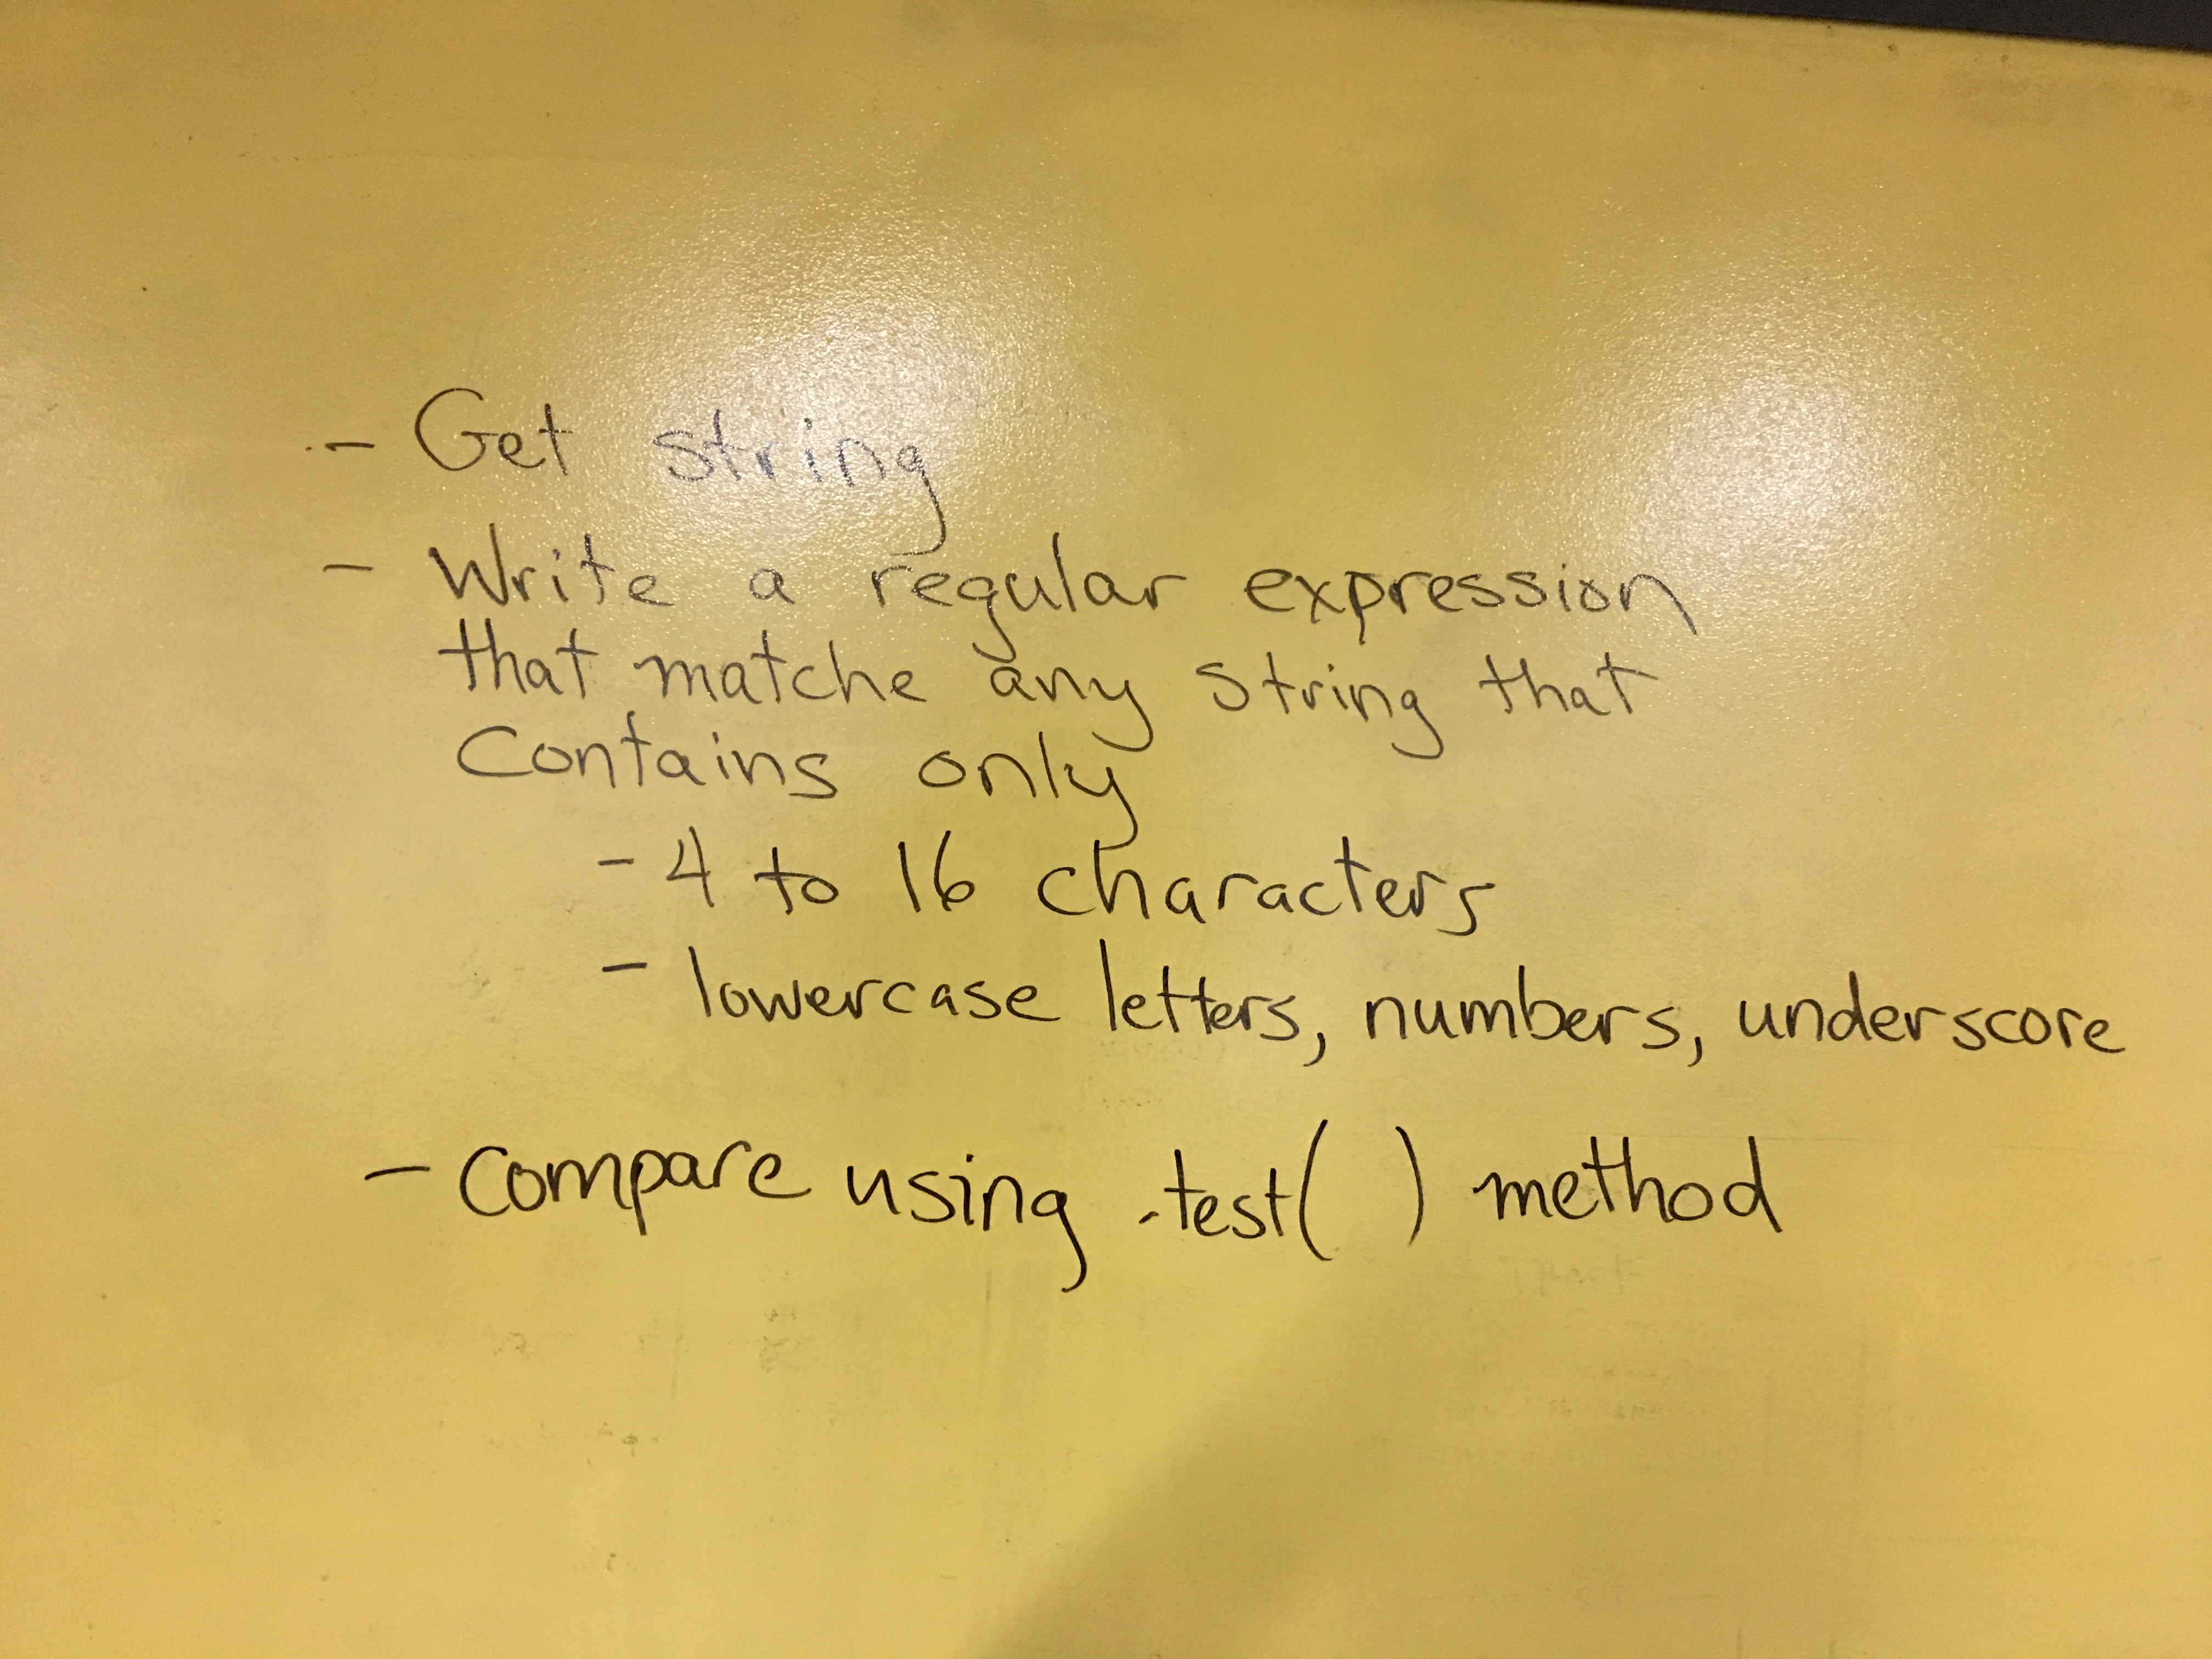 - Get string
- Write a regular expression
that matche any string that
contains only
- 4 to 16 characters
- lowercase letters, numbers, underscore
- compare using .test( ) method